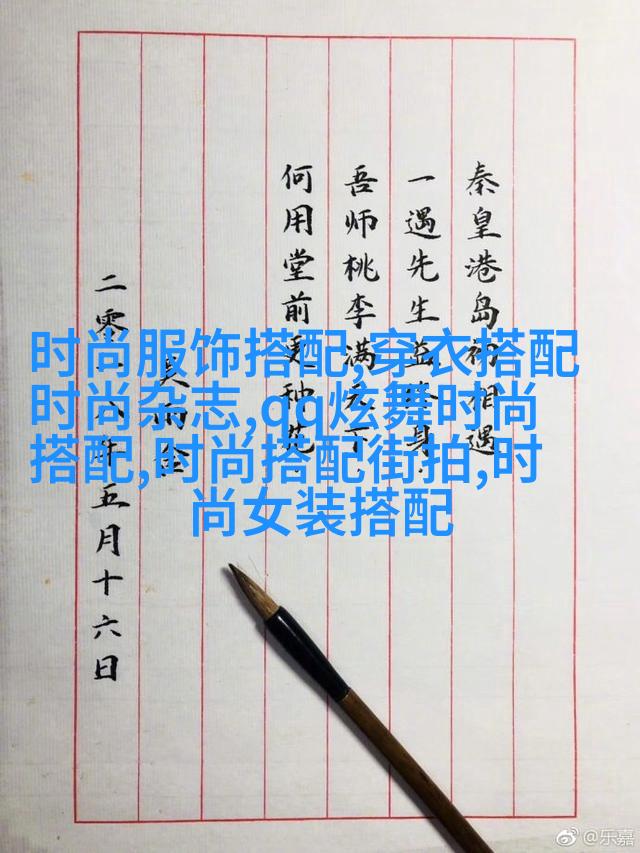 秦皇港岛初相遇
一遇先生益终身
吾师桃李满天下
何用堂前更种花
二零一八年五月十六日
时尚服饰搭配,穿衣搭配
时尚杂志,qq炫舞时尚
搭配,时尚搭配街拍,时
尚女装搭配
@乐嘉